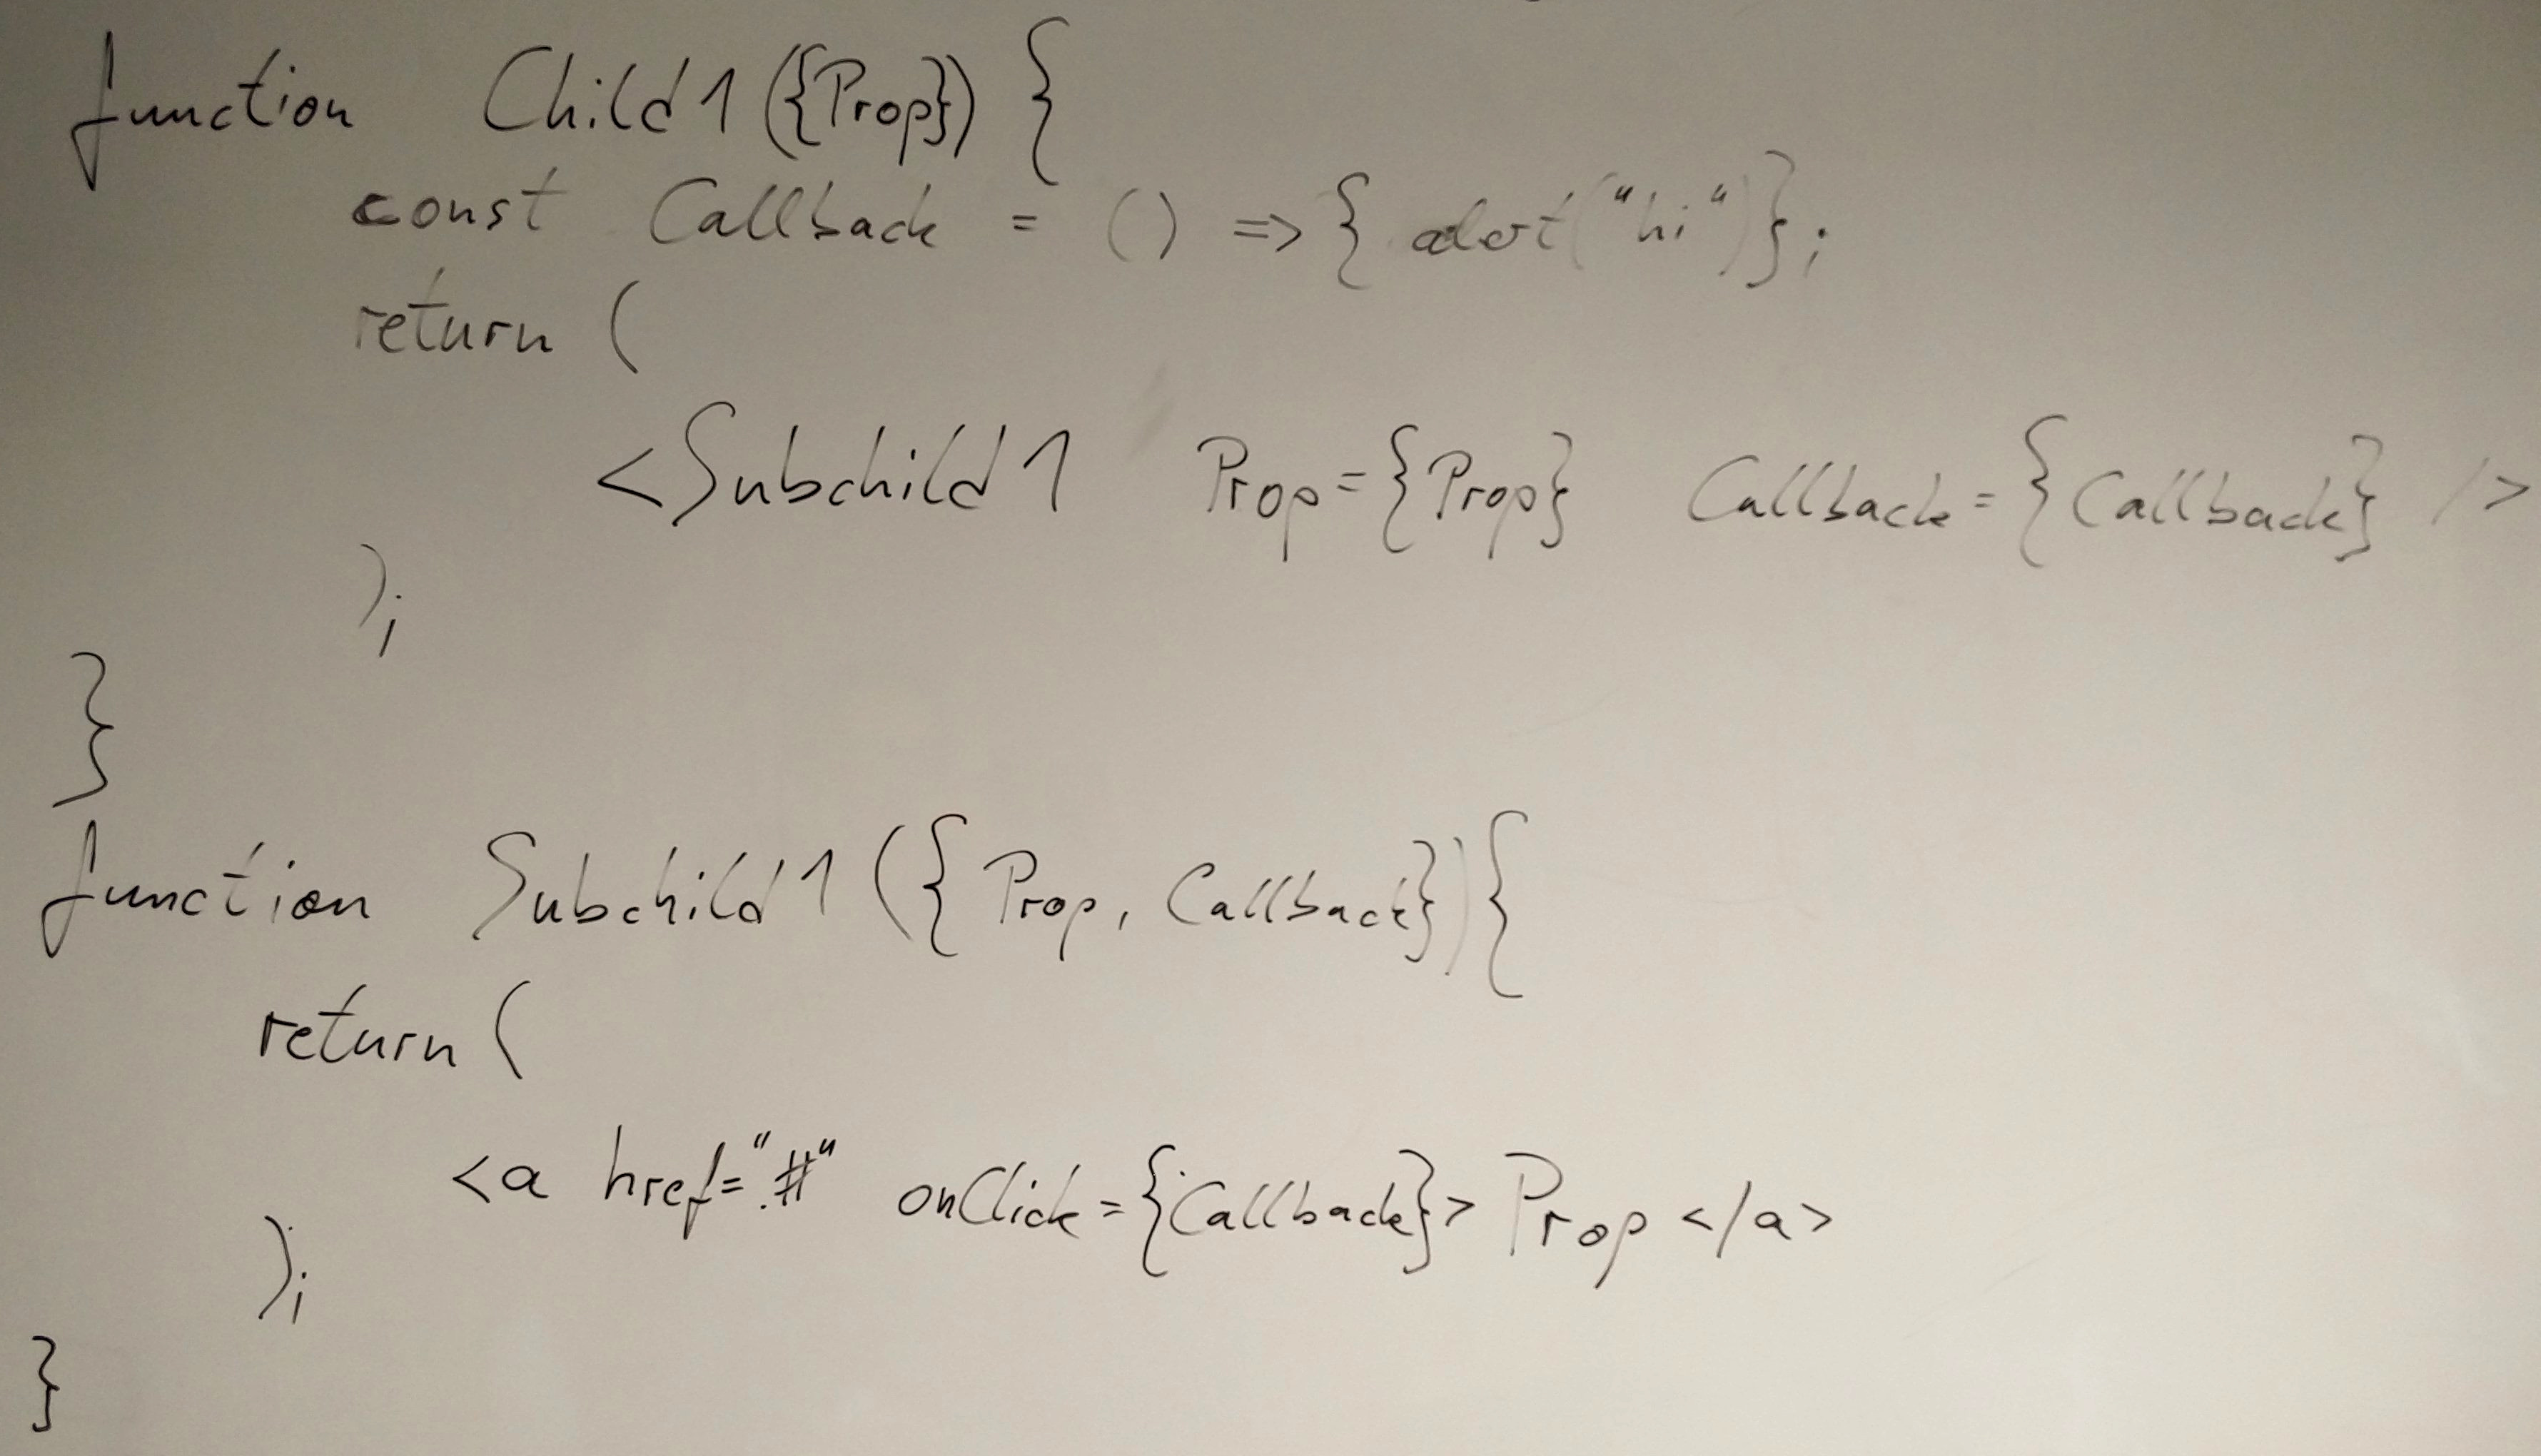 function Child1({Prop}) {
const Callback = () => { alert("hi")};
return (
<Subchild1 Prop={Prop} Callback={Callback} />
);
}
function Subchild1({Prop, Callback}){
return (
<a href="#" onClick={Callback}> Prop </a>
);
}